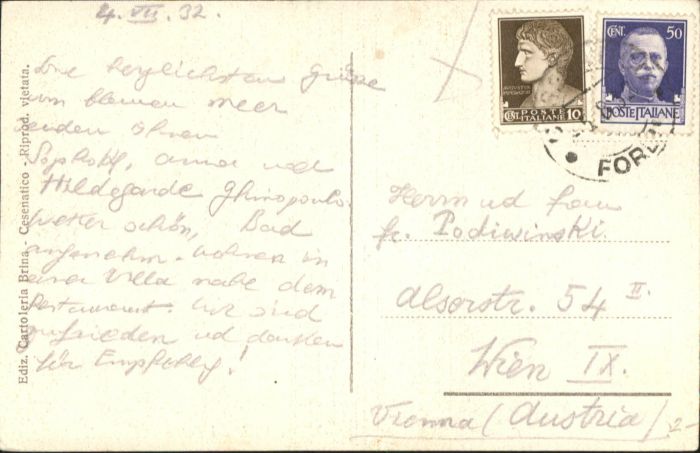 4. VII. 32.
Die herzlichsten Grüße
vom blauen Meer
senden Ihnen
Sophokl, Anna und
Hildegarde Ghinopoulo.
Wetter schön, Bad
angenehm. Wohnen in
einer Villa nahe dem
Restaurant. Wir sind
zufrieden ud danken
für Empfehlg!
Ediz. Cartoleria Brina - Cesenatico - Riprod. vietata.
AUGUSTUS
POSTE
ITALIANE
CENT. 10
CENT. 50
POSTE ITALIANE
FORL
Herrn ud Frau
Podiwinski
Alserstr. 54 II.
Wien IX.
Vienna (Austria)
2-